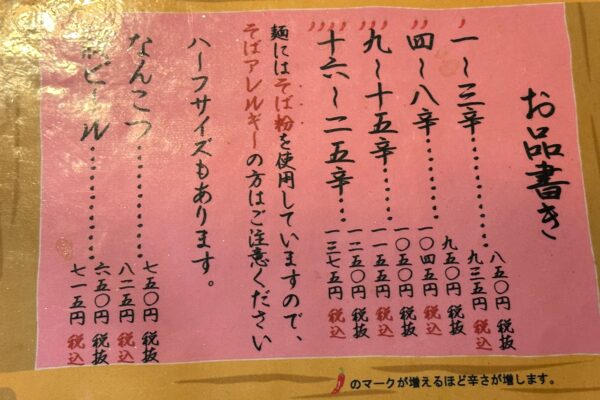 お品書き
一〜三辛………… 八五〇円 税抜
九三五円 税込
四〜八辛………… 九五〇円 税抜
一〇四五円 税込
九〜十五辛……… 一〇五〇円 税抜
一一五五円 税込
十六〜二五辛…… 一二五〇円 税抜
一三七五円 税込
麺にはそば粉を使用していますので、
そばアレルギーの方はご注意ください
ハーフサイズもあります。
なんこつ………… 七五〇円 税抜
八二五円 税込
ビール………… 六五〇円 税抜
七一五円 税込
のマークが増えるほど辛さが増します。